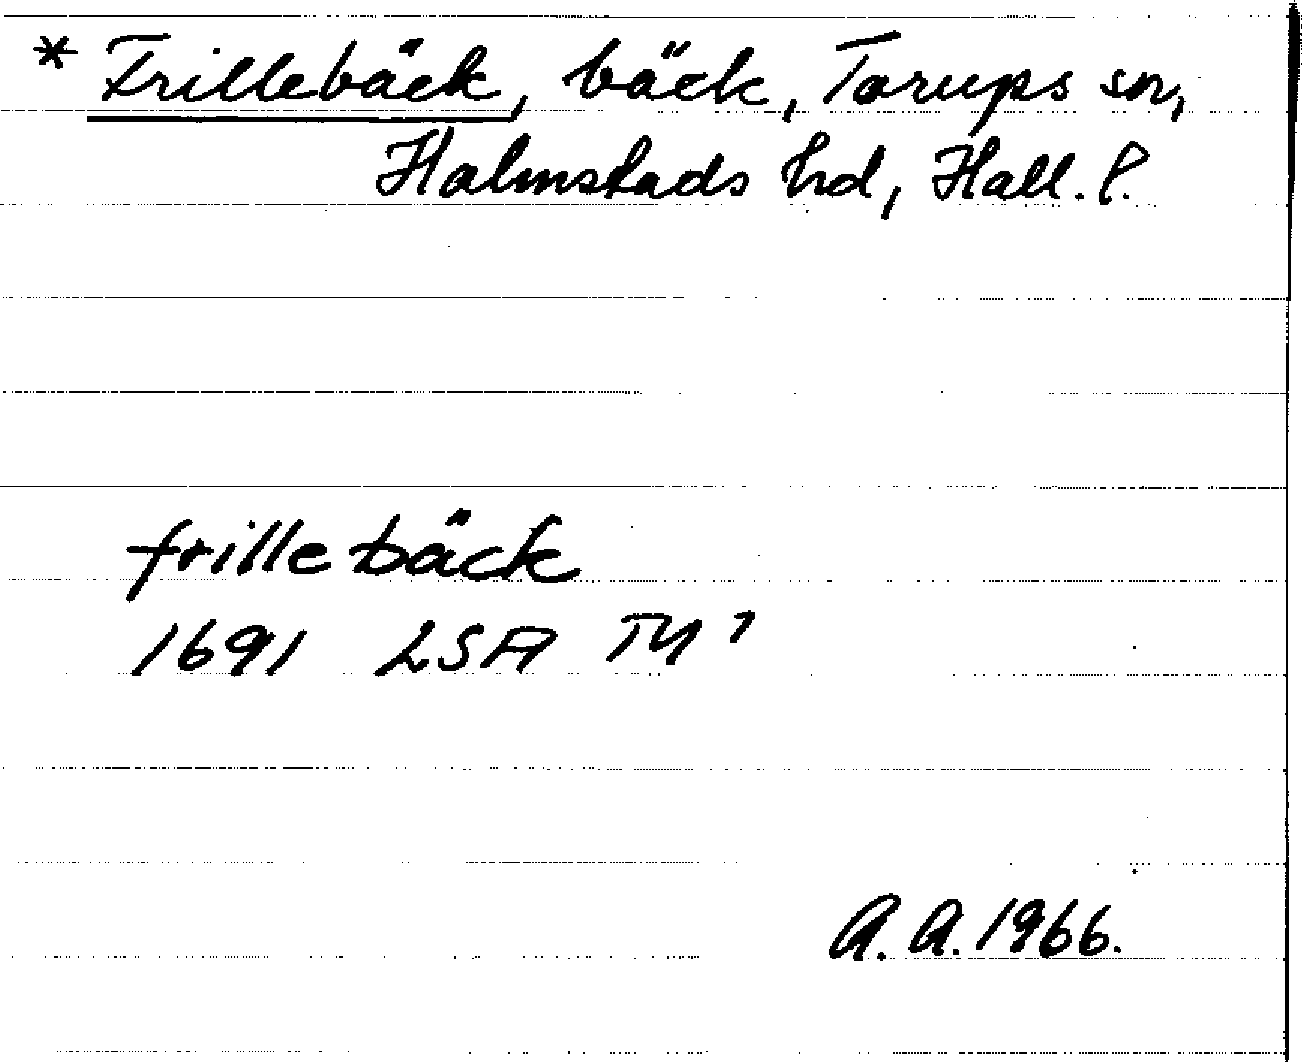 * Frillebäck, bäck, Torups sn,
Halmstads hd, Hall. l.
frillebäck
1691 LSA T4¹
A. A. 1966.